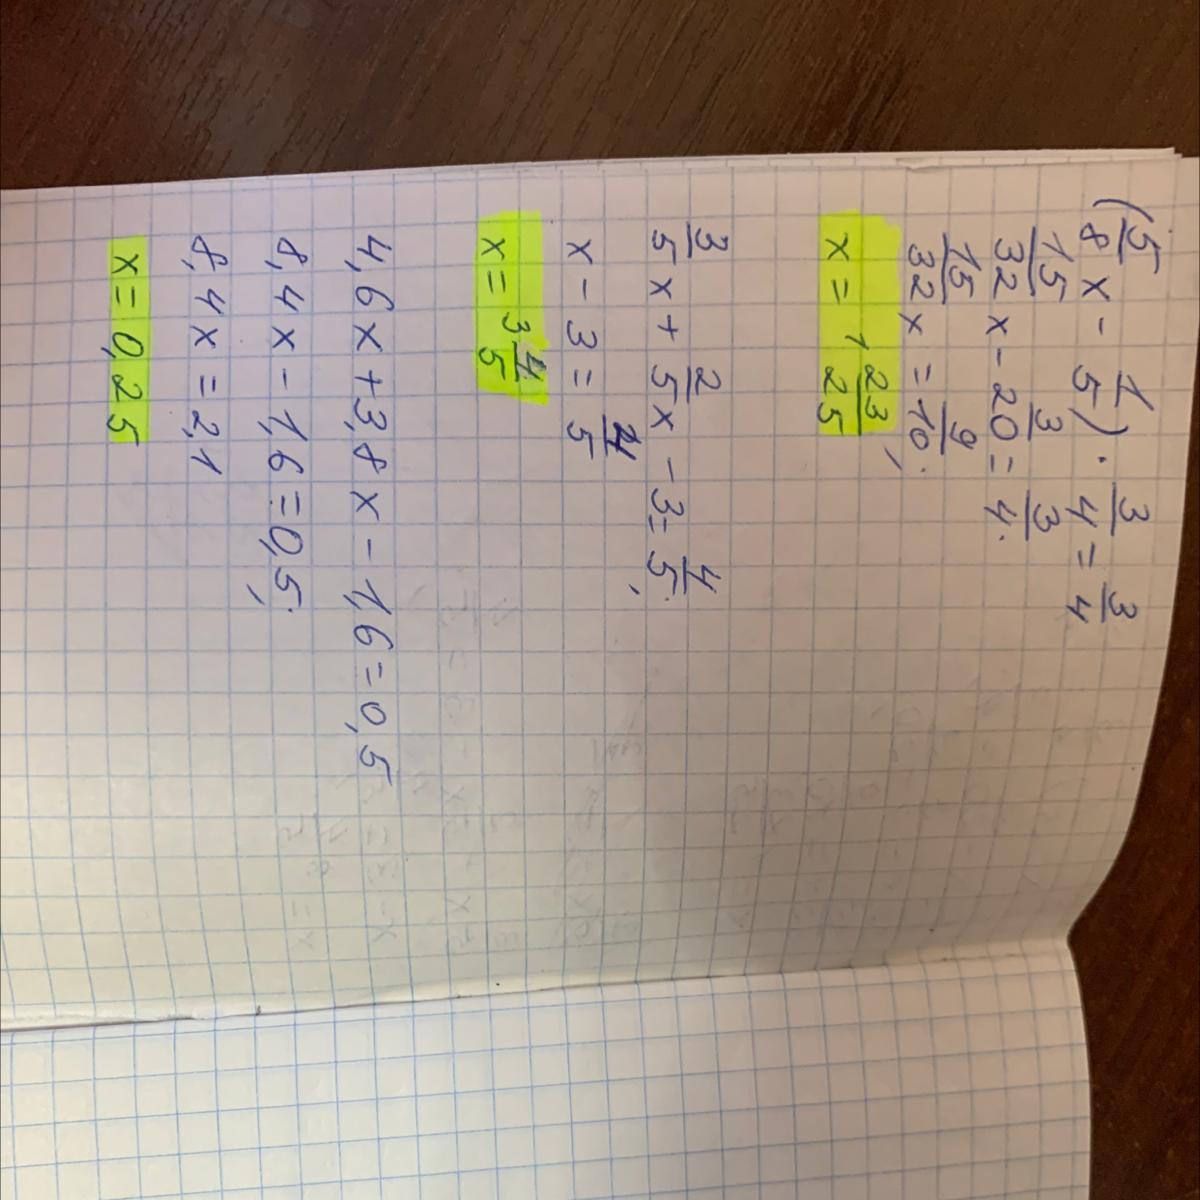 (5/8 x - 1/5) · 3/4 = 3/4
15/32 x - 3/20 = 3/4.
15/32 x = 9/10;
x = 1 23/25
3/5 x + 2/5 x - 3 = 4/5;
x - 3 = 4/5
x = 3 4/5
4,6x + 3,8x - 1,6 = 0,5
8,4x - 1,6 = 0,5;
8,4x = 2,1
x = 0,25